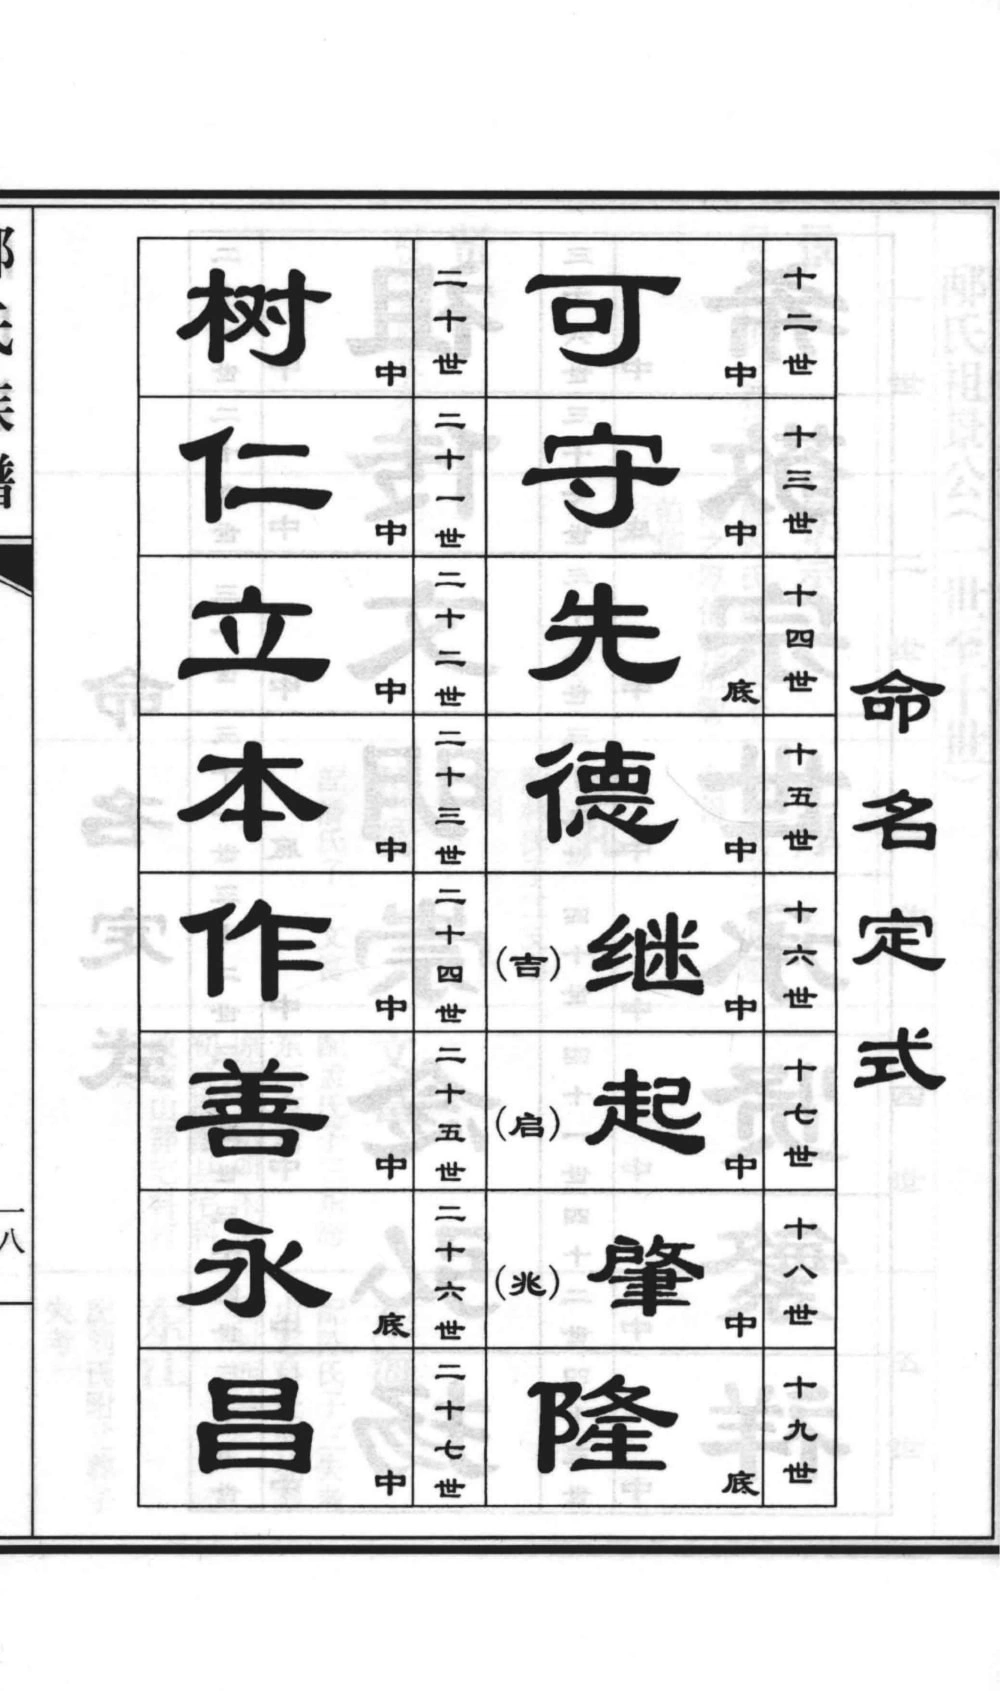 命名定式
十二世 可 中
十三世 守 中
十四世 先 底
十五世 德 中
十六世 继（吉） 中
十七世 起（启） 中
十八世 肇（兆） 中
十九世 隆 底
二十世 树 中
二十一世 仁 中
二十二世 立 中
二十三世 本 中
二十四世 作 中
二十五世 善 中
二十六世 永 底
二十七世 昌 中
氏族谱
一八